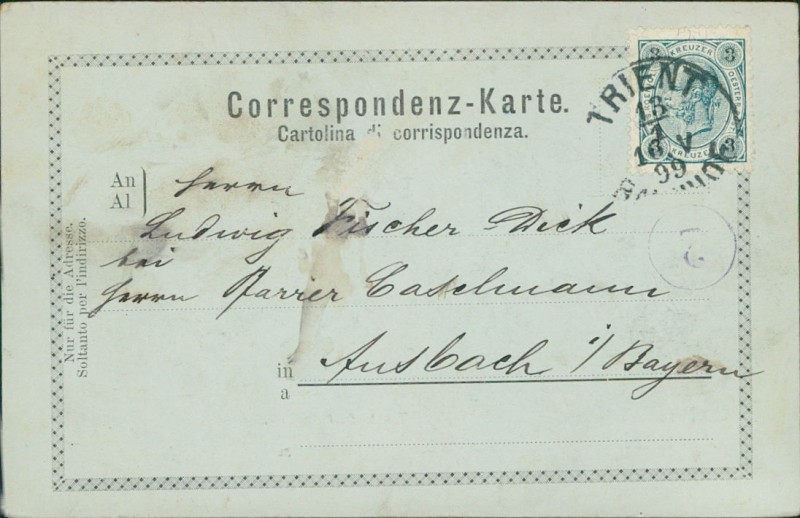 3 KREUZER 3
TRIENT
13
V
99
3 KREUZER 3
Correspondenz-Karte.
Cartolina di corrispondenza.
An
Al
Herrn
Ludwig Fischer Dick
bei
Herrn Pfarrer Caselmann
in
a
Ansbach i/Bayern
Nur für die Adresse.
Soltanto per l'indirizzo.